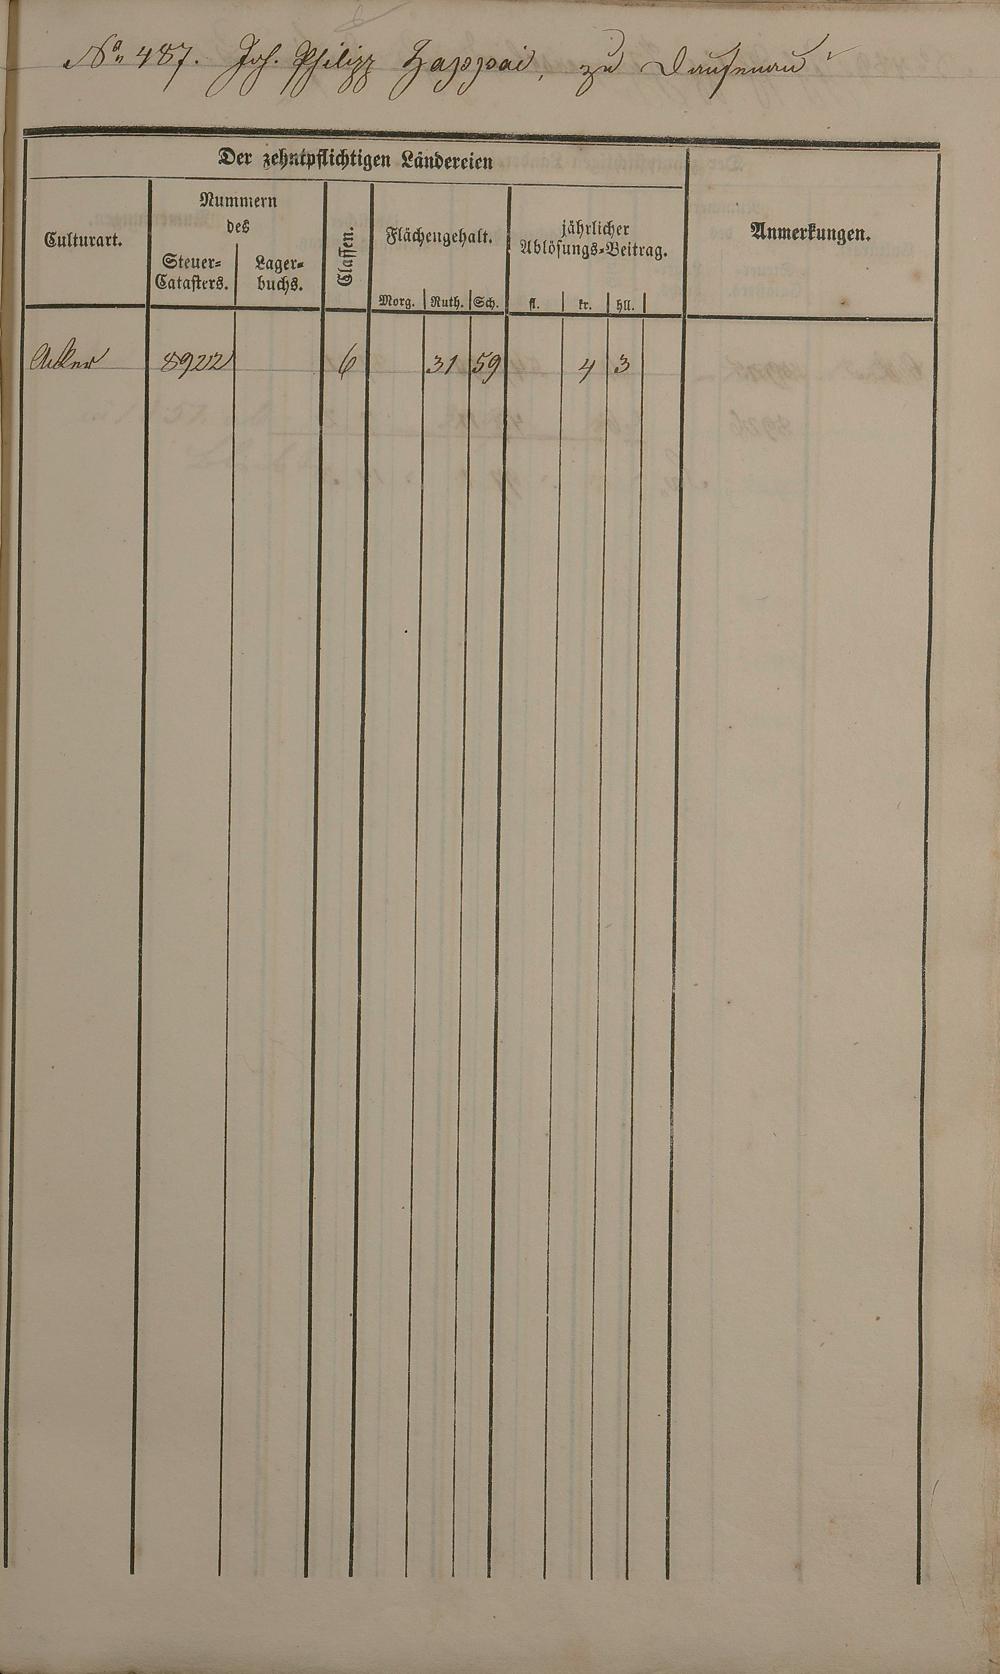 No. 487. Joh. Philipp Zappai, zu Dausenau
Der zehntpflichtigen Ländereien
Culturart.
Nummern
des
Steuer-
Catasters.
Lager-
buchs.
Classen.
Flächengehalt.
Morg. Ruth. Sch.
jährlicher
Ablösungs-Beitrag.
fl. kr. hll.
Anmerkungen.
Acker 8922 6 31 59 4 3